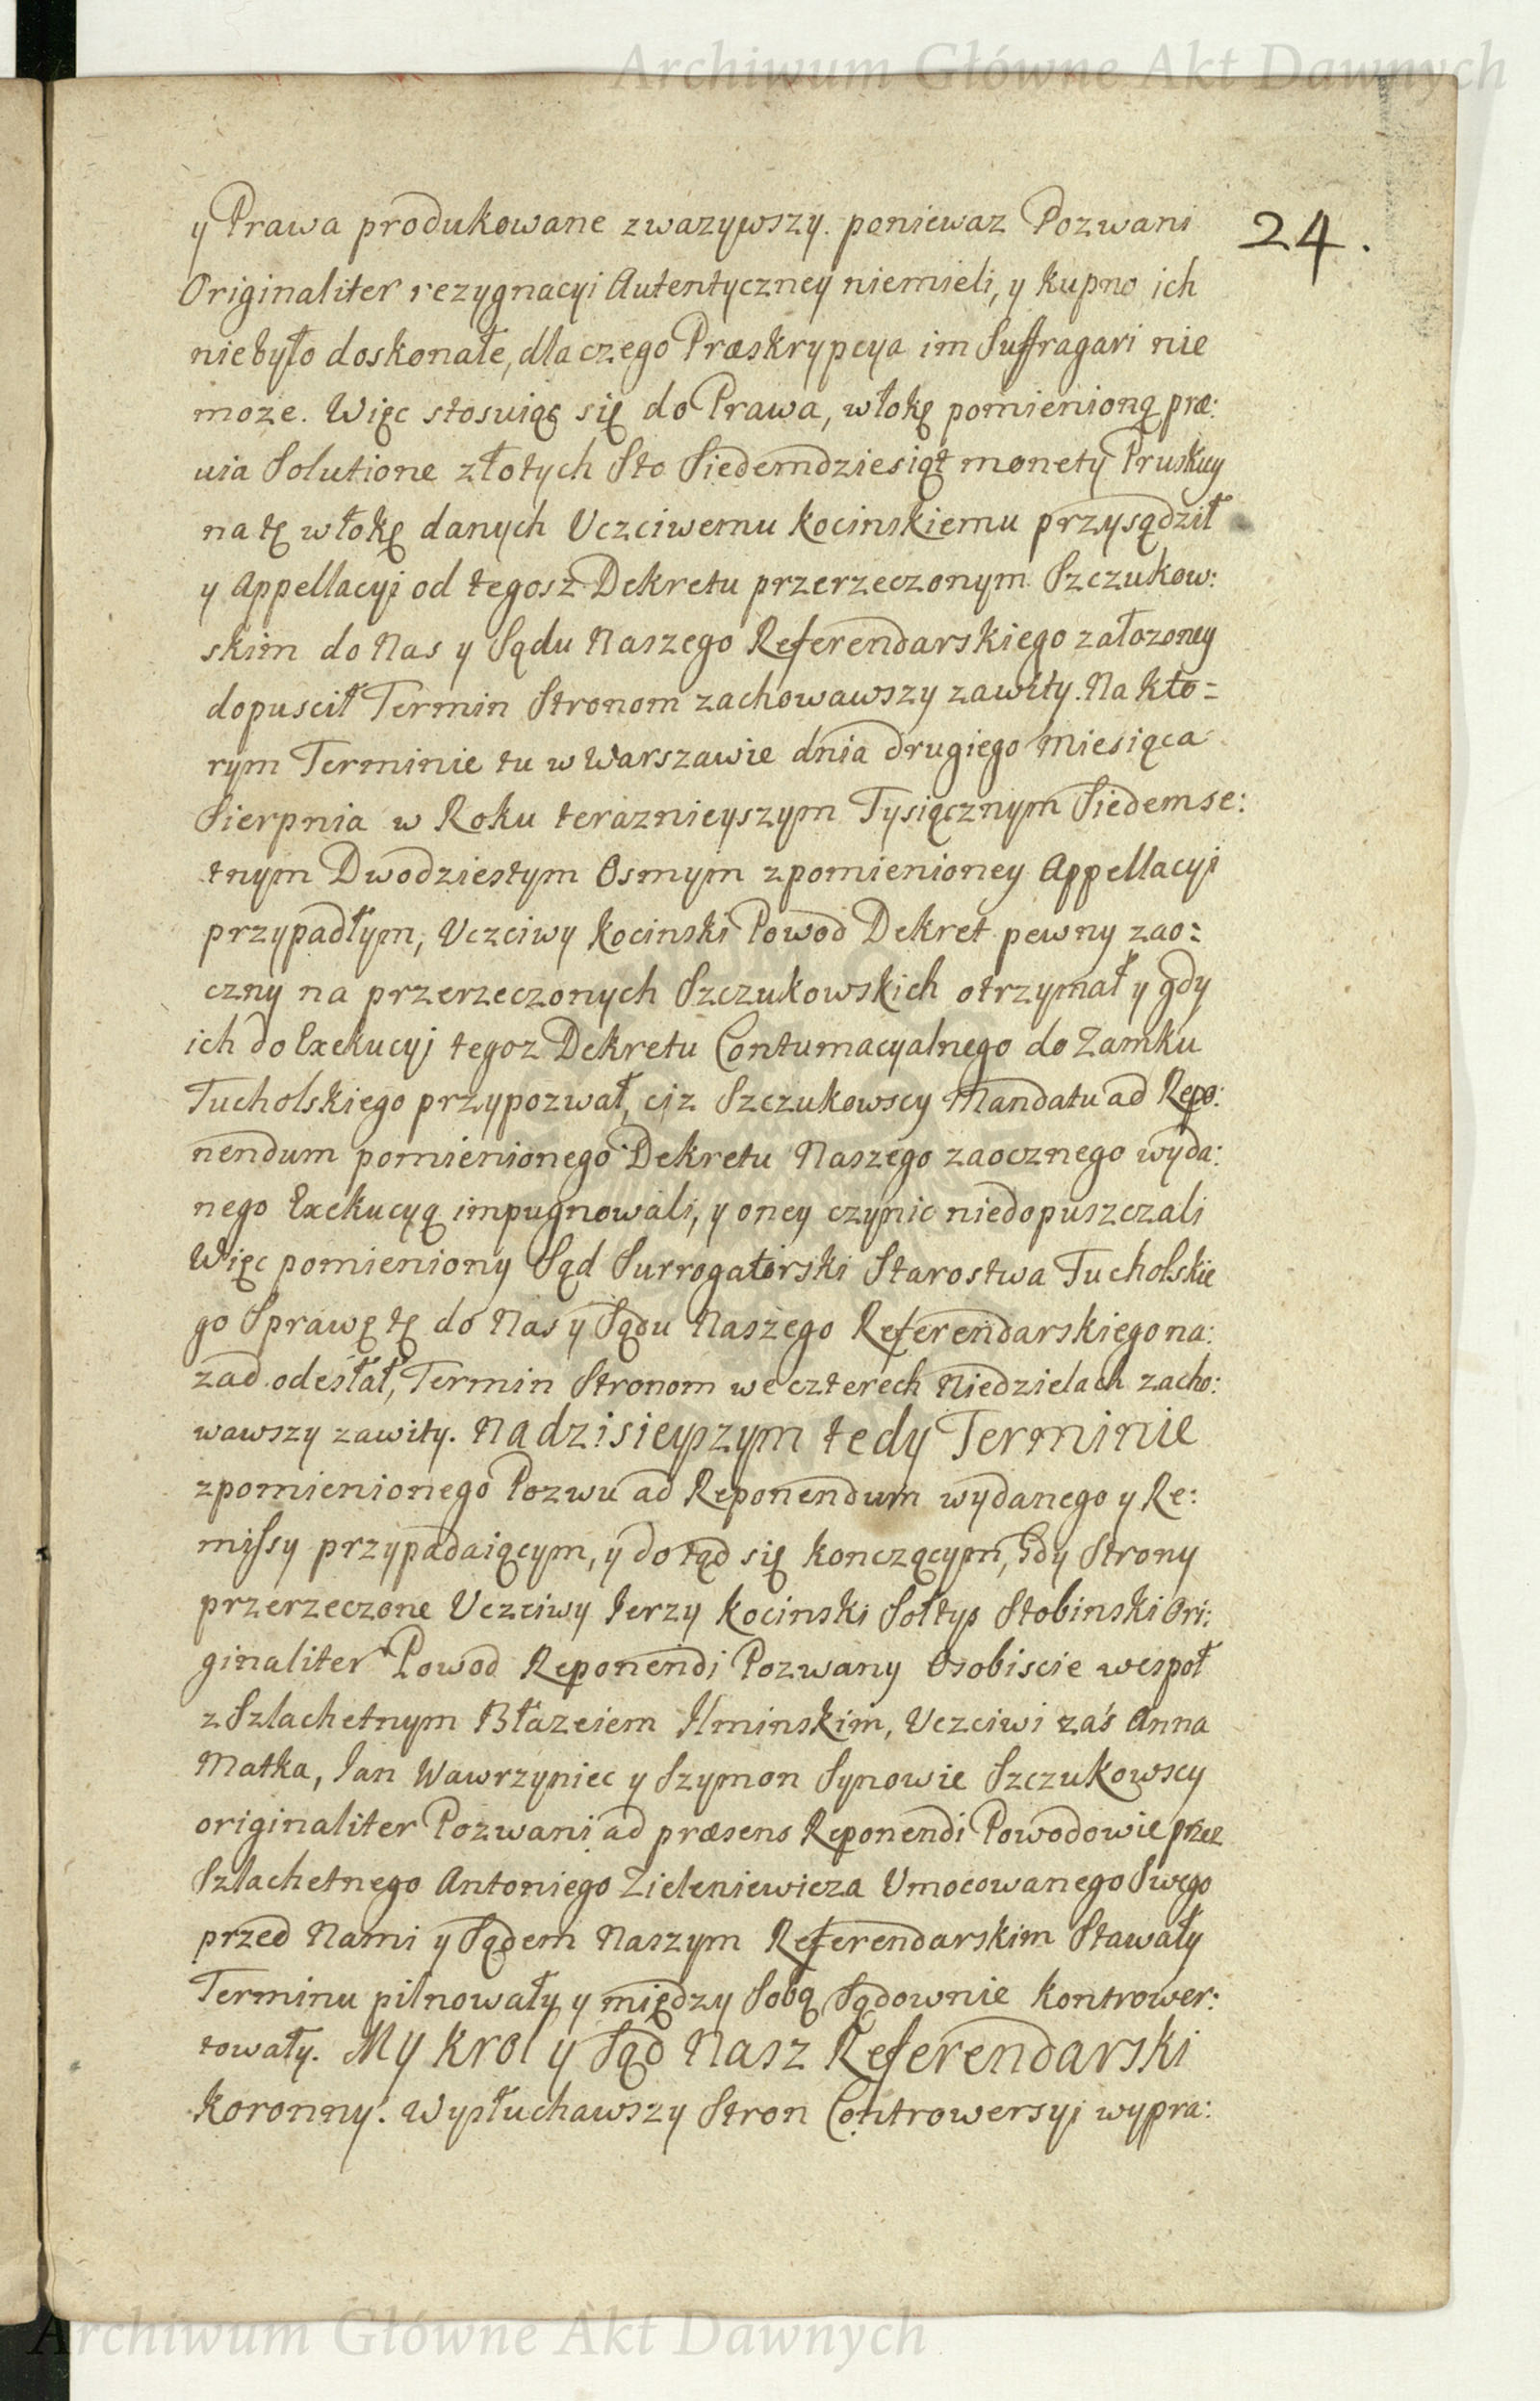 Archiwum Główne Akt Dawnych
24.
y Prawa produkowane zwazywszy. poniewaz Pozwani
Originaliter rezygnacyi Autentyczney niemieli, y kupno ich
niebyło doskonałe, dlaczego Præskrypcya im Suffragari nie
moze. Więc stosuiąc się do Prawa, włokę pomienioną præ:
uia Solutione złotych Sto Siedemdziesiąt monety Pruskiey
na tę włokę danych Uczciwemu Kocinskiemu przysądził
y Appellacyi od tegosz Dekretu przerzeczonym Szczukow:
skim do Nas y Sądu Naszego Referendarskiego załozoney
dopuscił Termin Stronom zachowawszy zawity. Na kto=
rym Terminie tu w Warszawie dnia drugiego Miesiąca
Sierpnia w Roku teraznieyszym Tysiącznym Siedemse:
tnym Dwodziestym Osmym zpomienioney Appellacyi
przypadłym, Uczciwy Kocinski Powod Dekret pewny zao:
czny na przerzeczonych Szczukowskich otrzymał y gdy
ich do Exekucyi tegoz Dekretu Contumacyalnego do Zamku
Tucholskiego przypozwał, ciz Szczukowscy Mandatu ad Repo:
nendum pomienionego Dekretu Naszego zaocznego wyda:
nego Exekucyą impugnowali, y oney czynic niedopuszczali
Więc pomieniony Sąd Surrogatorski Starostwa Tucholskie
go Sprawę tę do Nas y Sądu Naszego Referendarskiego na:
zad odesłał, Termin Stronom we czterech Niedzielach zacho:
wawszy zawity. Nadzisieyszym tedy Terminie
zpomienionego Pozwu ad Reponendum wydanego y Re:
missy przypadaiącym, y dotąd się konczącym, Gdy Strony
przerzeczone Uczciwy Jerzy Kocinski Sołtys Stobinski Ori:
ginaliter Powod Reponendi Pozwany Osobiscie wespoł
z Szlachetnym Błazeiem Ilminskim, Uczciwi zaś Anna
Matka, Jan Wawrzyniec y Szymon Synowie Szczukowscy
originaliter Pozwani ad præsens Reponendi Powodowie przez
Szlachetnego Antoniego Zieleniewicza Umocowanego Swego
przed Nami y Sądem Naszym Referendarskim Stawały
Terminu pilnowały y między Sobą Sądownie kontrower:
towały. My Krol y Sąd Nasz Referendarski
Koronny. Wysłuchawszy Stron Controwersyi wypra:
Archiwum Główne Akt Dawnych